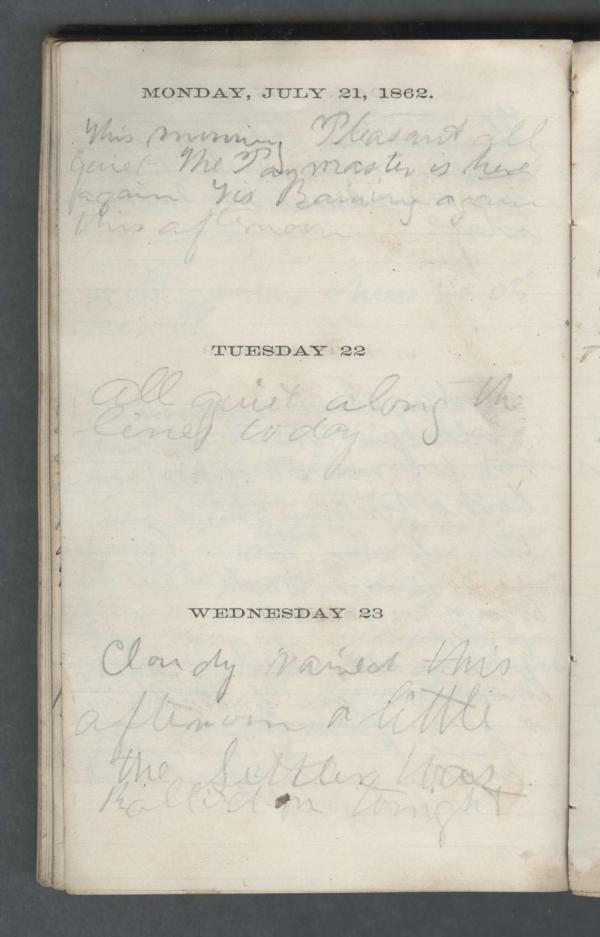 MONDAY, JULY 21, 1862.
This morning Pleasant all
quiet The Paymaster is here
again Tis Raining again
this afternoon
TUESDAY 22
all quiet along the
lines today
WEDNESDAY 23
Cloudy rained this
afternoon a little
the Suttler was
Rallied on tonight